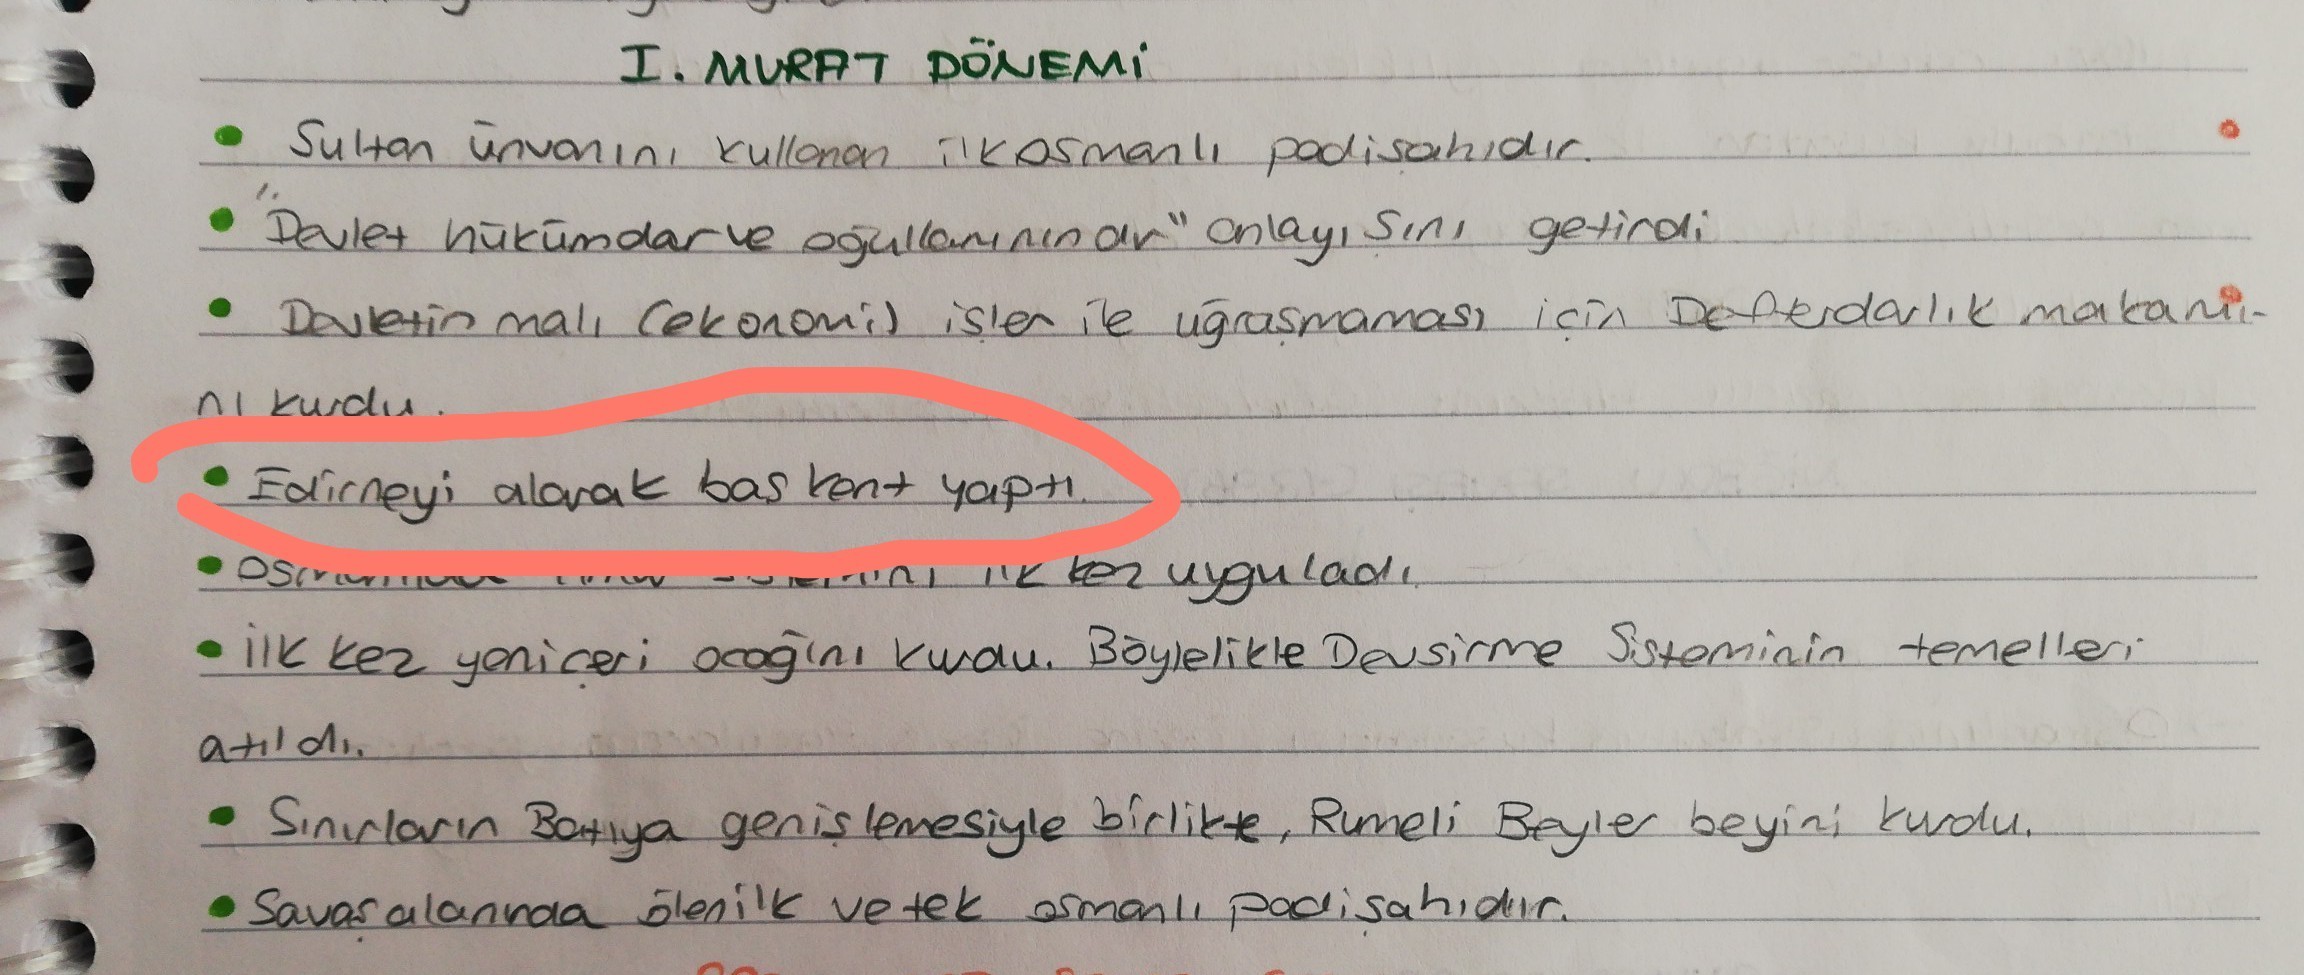 I. MURAT DÖNEMİ
• Sultan ünvanını kullanan ilk osmanlı padişahıdır.
• "Devlet hükümdar ve oğullarınındır" anlayışını getirdi
• Devletin malı (ekonomi) işler ile uğraşmaması için Defterdarlık makamı-
nı kurdu.
• Edirneyi alarak baş kent yaptı.
• ilk kez uyguladı.
• İlk kez yeniçeri ocağını kurdu. Böylelikle Devşirme Sisteminin temelleri
atıldı.
• Sınırların Batıya genişlemesiyle birlikte, Rumeli Beyler beyini kurdu.
• Savaş alanında ölen ilk ve tek osmanlı padişahıdır.